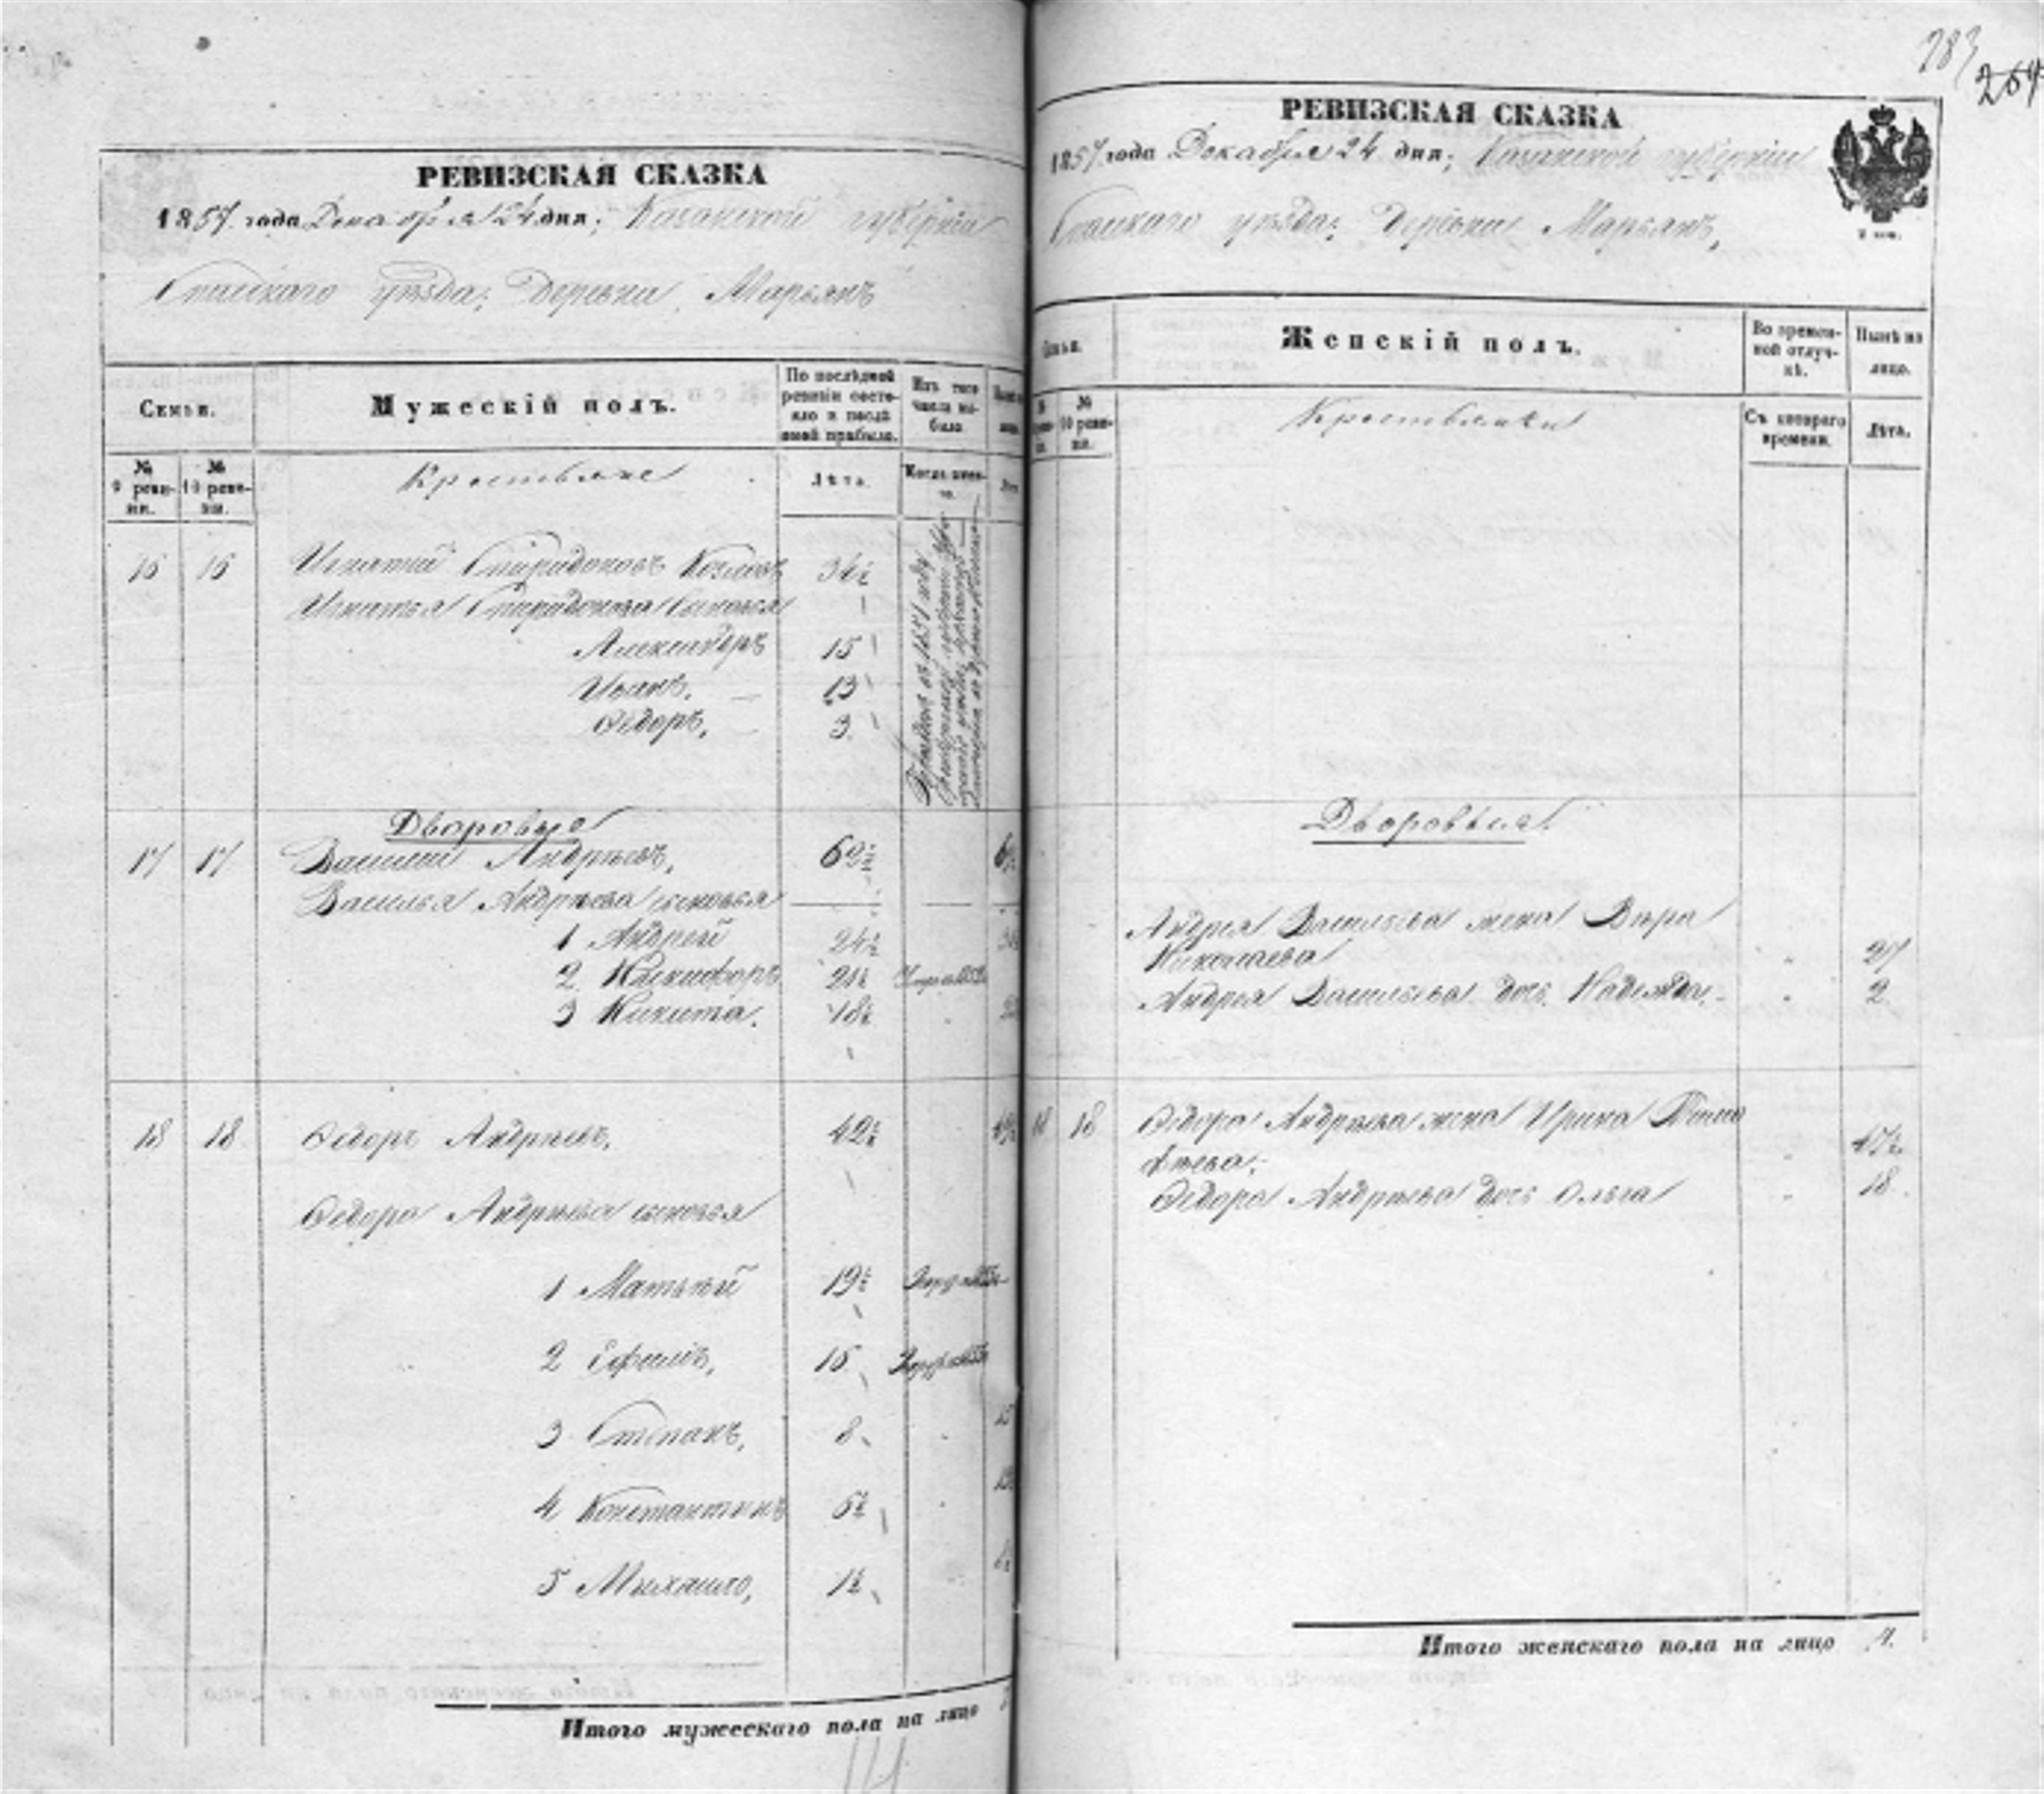 РЕВИЗСКАЯ СКАЗКА
1857 года Декабря 24 дня; Казанской губерніи
Спасскаго уѣзда; Деревни Марьянъ
Семьи.
Мужескій полъ.
По послѣдней ревизіи состояло и послѣ оной прибыло.
Изъ того числа выбыло
№ 9 ревизіи.
№ 10 ревизіи.
Крестьяне
Лѣта.
Когда именно.
16 16 Игнатий Спиридоновъ Козловъ 34½
Игнатья Спиридонова сыновья
Александръ 15
Иванъ, 13
Ѳедоръ, 3
Дворовые
17 17 Василий Андрѣевъ, 62½
Василья Андрѣева сыновья
1 Андрей 24½
2 Никифоръ 21½
3 Никита. 18½
18 18 Ѳедоръ Андрѣевъ. 42½
Ѳедора Андрѣева сыновья
1 Матвѣй 19½
2 Ефимъ, 16
3 Степанъ, 8
4 Константинъ 6½
5 Михайло, 1½
Итого мужескаго пола на лицо
283
264
РЕВИЗСКАЯ СКАЗКА
1857 года Декабря 24 дня; Казанской губерніи
Спасскаго уѣзда; Деревни Марьянъ,
Семьи.
Женскій полъ.
Во временной отлучкѣ.
Нынѣ на лицо.
№ 10 ревизіи.
Крестьянки
Съ котораго времени.
Лѣта.
Дворовыя
Андрея Васильева жена Вѣра
Николаева 27
Андрея Васильева дочь Надежда, 2
18 18 Ѳедора Андрѣева жена Ирина Тимо
фѣева. 47½
Ѳедора Андрѣева дочь Ольга 18
Итого женскаго пола на лицо 4.